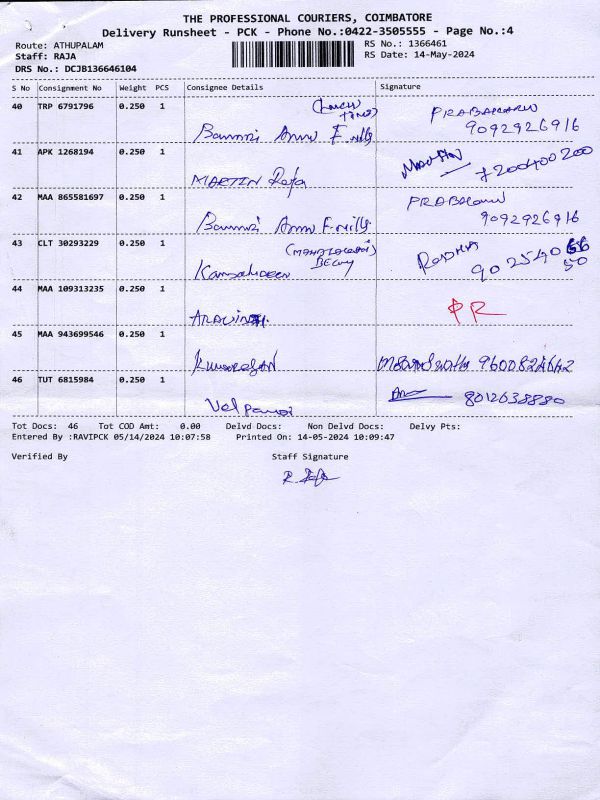 THE PROFESSIONAL COURIERS, COIMBATORE
Delivery Runsheet - PCK - Phone No.:0422-3505555 - Page No.:4
Route: ATHUPALAM RS No.: 1366461
Staff: RAJA RS Date: 14-May-2024
DRS No.: DCJB136646104
S No Consignment No Weight PCS Consignee Details Signature
40 TRP 6791796 0.250 1
9092926916
41 APK 1268194 0.250 1 MARTIN Raja 7200400200
42 MAA 865581697 0.250 1
9092926916
43 CLT 30293229 0.250 1 RADHA
44 MAA 109313235 0.250 1 PR
45 MAA 943699546 0.250 1 Kumaresan
46 TUT 6815984 0.250 1 Velpandi 8012638880
Tot Docs: 46 Tot COD Amt: 0.00 Delvd Docs: Non Delvd Docs: Delvy Pts:
Entered By :RAVIPCK 05/14/2024 10:07:58 Printed On: 14-05-2024 10:09:47
Verified By Staff Signature